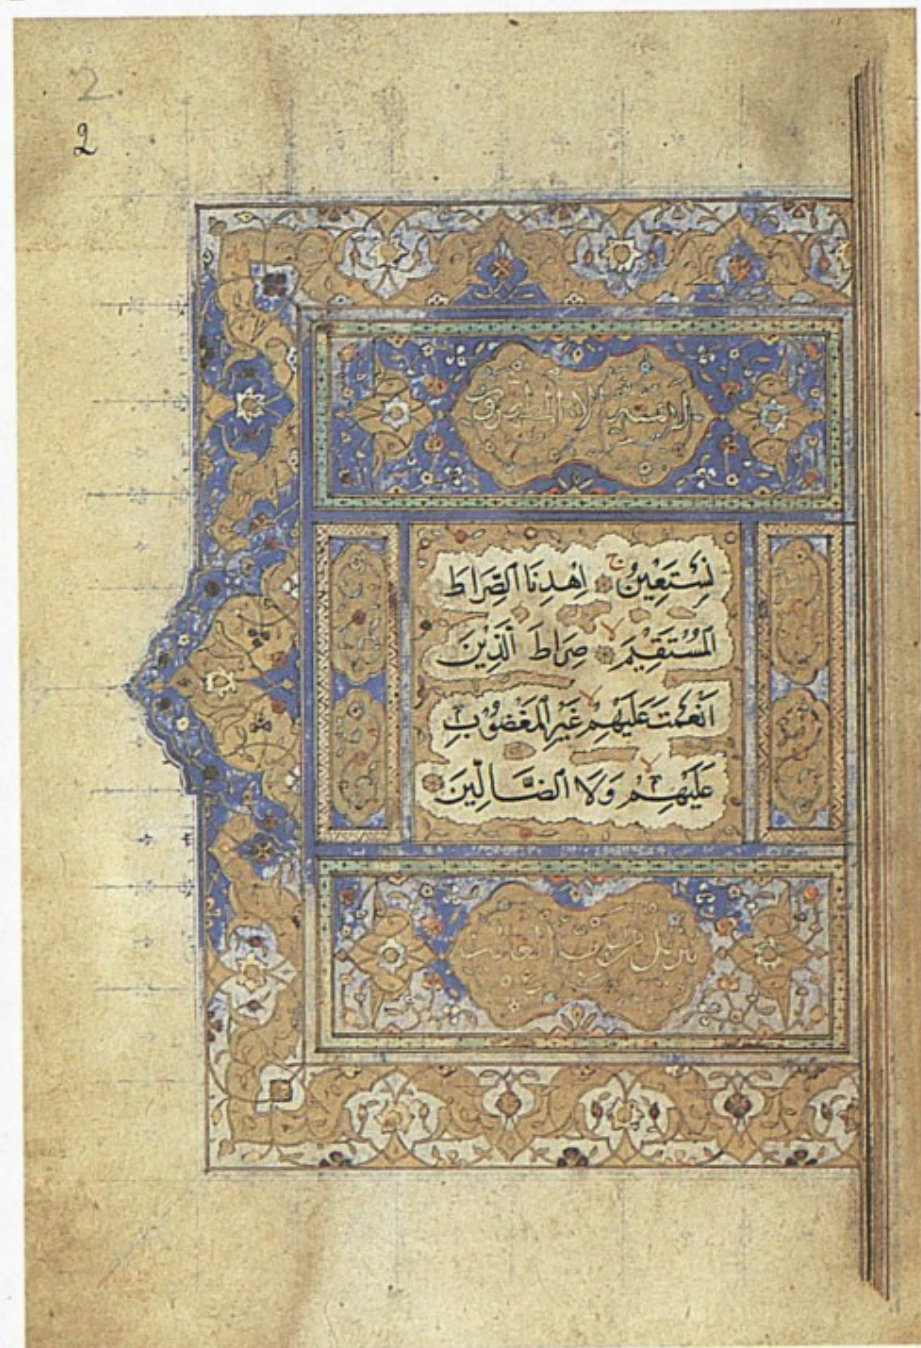 2
2
لا يمسه الا المطهرون
نَسْتَعِيْنُ ج اِهْدِنَا الصِّرَاطَ
الْمُسْتَقِيْمَ لا صِرَاطَ الَّذِيْنَ
اَنْعَمْتَ عَلَيْهِمْ لا غَيْرِ الْمَغْضُوْبِ
عَلَيْهِمْ لا وَلَا الضَّالِّيْنَ
تنزيل من رب العالمين